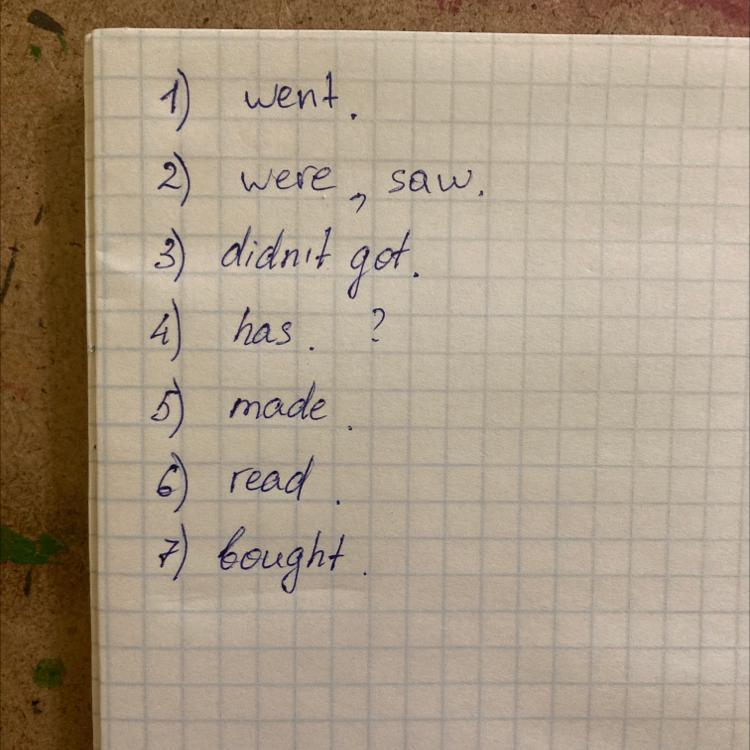 1) went.
2) were, saw.
3) didn't got.
4) has. ?
5) made.
6) read.
7) bought.